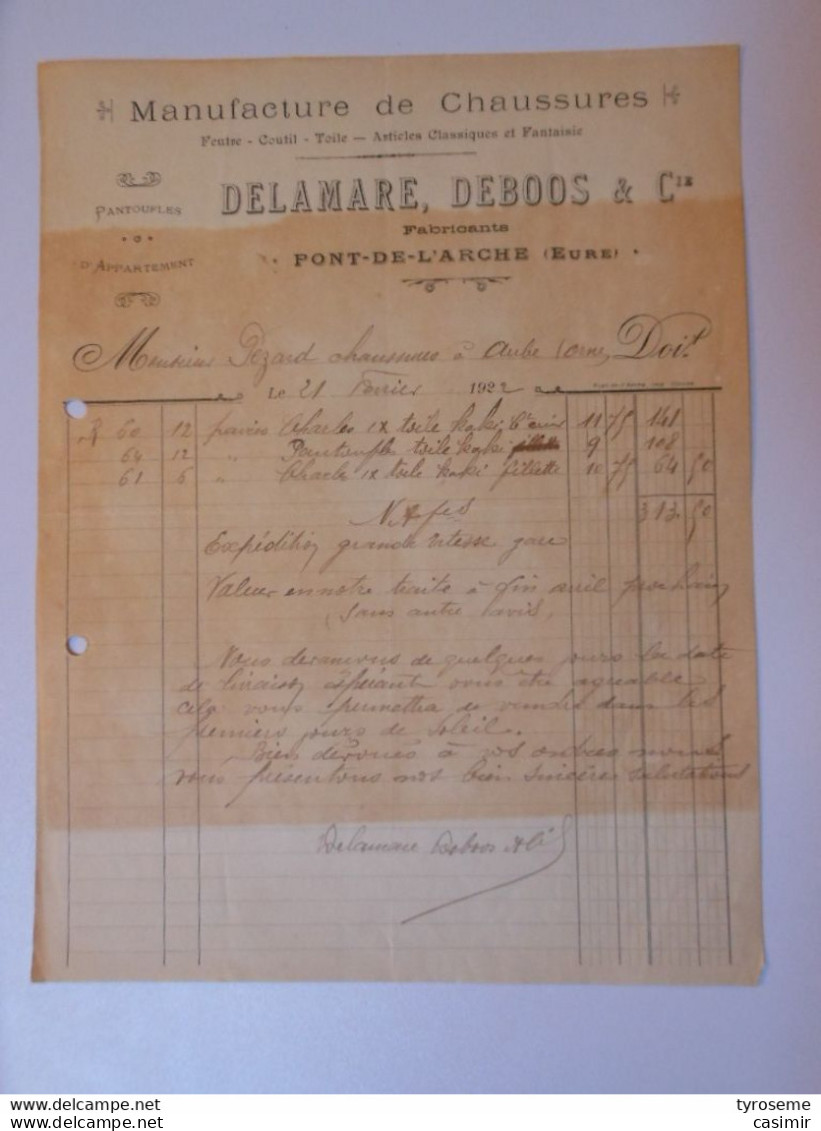 Manufacture de Chaussures
Feutre - Coutil - Toile — Articles Classiques et Fantaisie
DELAMARE, DEBOOS & Cie
Fabricants
PONT-DE-L'ARCHE (EURE)
PANTOUFLES
D'APPARTEMENT
Monsieur Pezard chaussures à Aube (Orne) Doit
Le 21 Février 1922
60 12 paires Charles IX toile kaki 11 75 141
64 12 " Pantoufle toile kaki fillette 9 108
61 6 " Charles IX toile kaki fillette 10 75 64 50
313 50
Expédition grande vitesse gare
Valeur en notre traite à fin avril prochain
sans autre avis,
Nous devançons de quelques jours la date
de livraison espérant vous être agréable
cela vous permettra de vendre dans les
premiers jours de soleil.
Bien dévoués à vos ordres nous
vous présentons nos bien sincères salutations
Delamare Deboos & Cie
delcampe.net
tyroseme
casimir